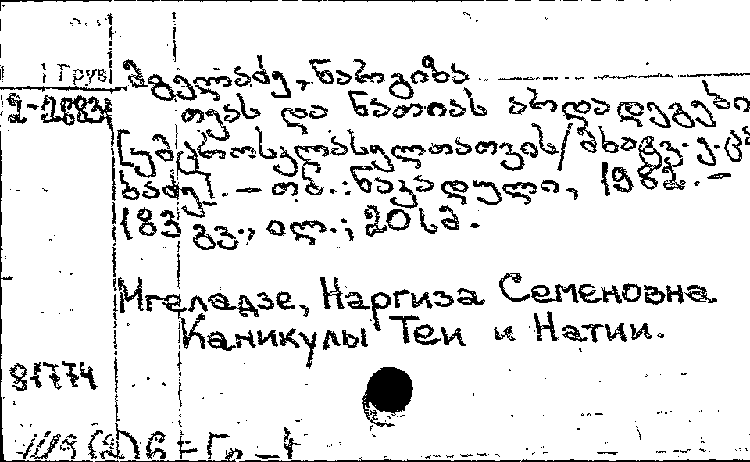 Груз
მგელაძე, ნარგიზა
2-2883
თეას და ნათიას არდადეგები
[უმცროსკლასელთათვის/მხატვ. ე.
ბაძე]. – თბ.: ნაკადული, 1982. –
183 გვ., ილ.; 20 სმ.
Мгеладзе, Наргиза Семеновна
Каникулы Теи и Натии.
81774